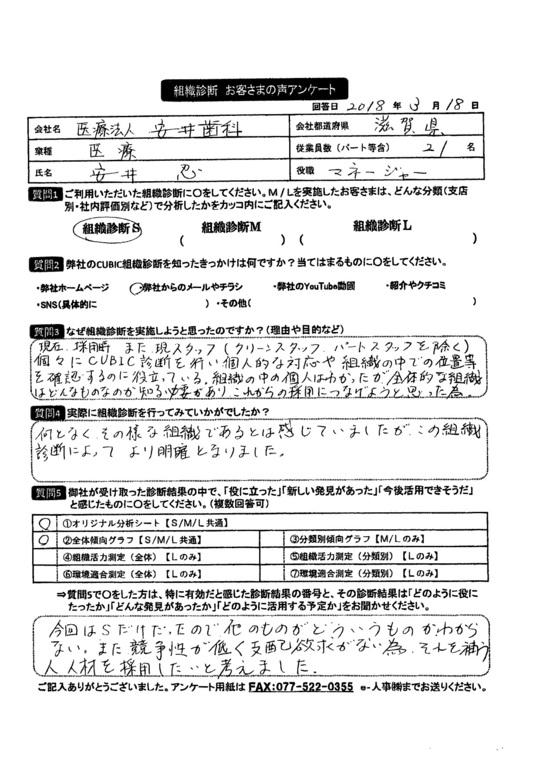 組織診断 お客さまの声アンケート
回答日 2018 年 3 月 18 日
会社名 医療法人 安井歯科 会社都道府県 滋賀県
業種 医療 従業員数（パート等含） 21 名
氏名 安井 忍 役職 マネージャー
質問1 ご利用いただいた組織診断に○をしてください。M/Lを実施したお客さまは、どんな分類（支店
別・社内評価別など）で分析したかをカッコ内にご記入ください。
組織診断S 組織診断M 組織診断L
（ ）（ ）
質問2 弊社のCUBIC組織診断を知ったきっかけは何ですか？当てはまるものに○をしてください。
・弊社ホームページ ・弊社からのメールやチラシ ・弊社のYouTube動画 ・紹介やクチコミ
・SNS(具体的に ） ・その他( ）
質問3 なぜ組織診断を実施しようと思ったのですか？（理由や目的など）
現在、採用時 また 現スタッフ（クリーンスタッフ、パートスタッフを除く）
個々にCUBIC診断を行い個人的な対応や組織の中での位置等
を確認するのに役立っている。組織の中の個人はわかったが全体的な組織
はどんなものなのか知る必要があり これからの採用につなげようと思った為。
質問4 実際に組織診断を行ってみていかがでしたか？
何となく、その様な組織であるとは感じていましたが、この組織
診断によって より明確となりました。
質問5 御社が受け取った診断結果の中で、「役に立った」「新しい発見があった」「今後活用できそうだ」
と感じたものに○をしてください。（複数回答可）
○ ①オリジナル分析シート【S/M/L共通】
○ ②全体傾向グラフ【S/M/L共通】 ③分類別傾向グラフ【M/Lのみ】
④組織活力測定（全体）【Lのみ】 ⑤組織活力測定（分類別）【Lのみ】
⑥環境適合測定（全体）【Lのみ】 ⑦環境適合測定（分類別）【Lのみ】
⇒質問5で○をした方は、特に有効だと感じた診断結果の番号と、その診断結果は「どのように役に
たったか」「どんな発見があったか」「どのように活用する予定か」をお聞かせください。
今回はSだけだったので他のものがどういうものかわから
ない。また競争性が低く支配欲求がない為、それを補う
人人材を採用したいと考えました。
ご記入ありがとうございました。アンケート用紙は FAX:077-522-0355 e-人事㈱までお送りください。